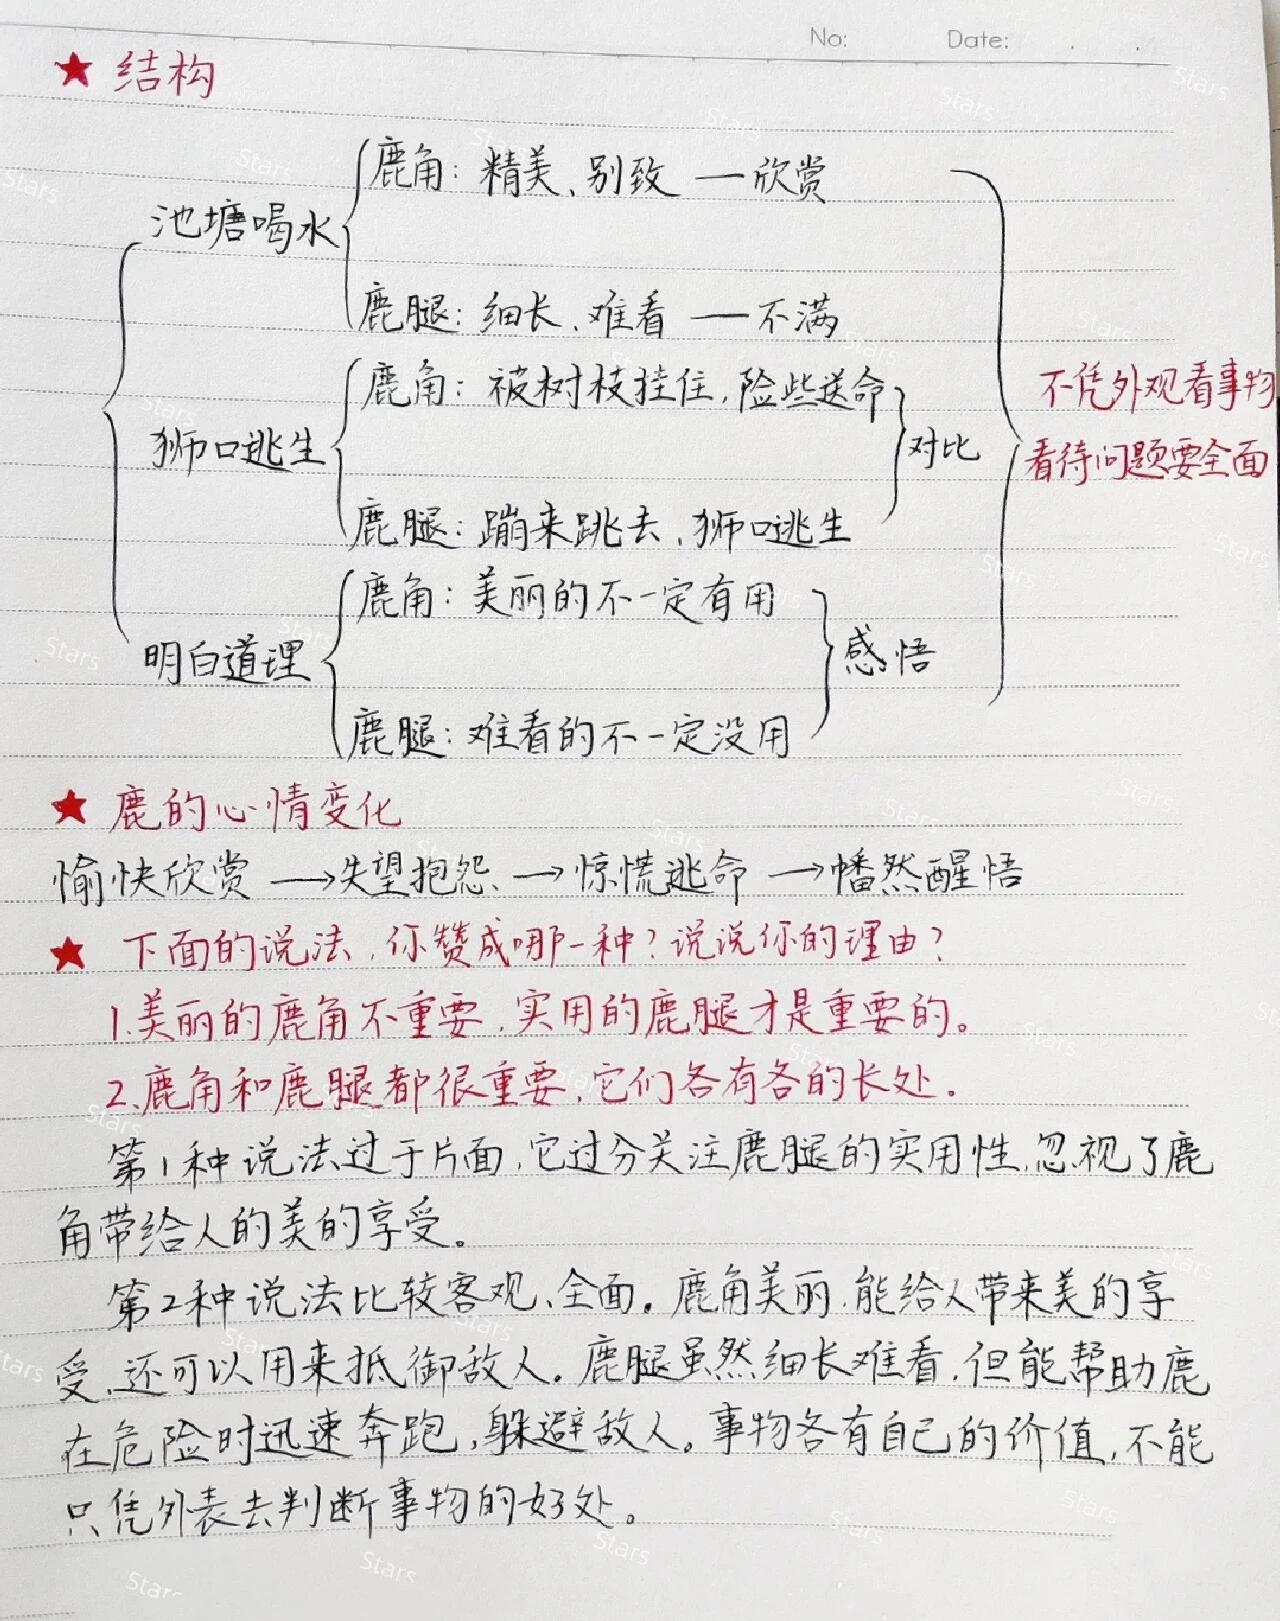 No: Date:
★ 结构
鹿角：精美、别致 — 欣赏
池塘喝水
鹿腿：细长、难看 — 不满
鹿角：被树枝挂住，险些送命
不凭外观看事物
狮口逃生
对比
看待问题要全面
鹿腿：蹦来跳去，狮口逃生
鹿角：美丽的不一定有用
明白道理
感悟
鹿腿：难看的不一定没用
★ 鹿的心情变化
愉快欣赏 → 失望抱怨 → 惊慌逃命 → 幡然醒悟
★ 下面的说法，你赞成哪一种？说说你的理由？
1.美丽的鹿角不重要，实用的鹿腿才是重要的。
2.鹿角和鹿腿都很重要，它们各有各的长处。
第1种说法过于片面，它过分关注鹿腿的实用性，忽视了鹿
角带给人的美的享受。
第2种说法比较客观、全面。鹿角美丽，能给人带来美的享
受，还可以用来抵御敌人。鹿腿虽然细长难看，但能帮助鹿
在危险时迅速奔跑，躲避敌人。事物各有自己的价值，不能
只凭外表去判断事物的好处。
Stars